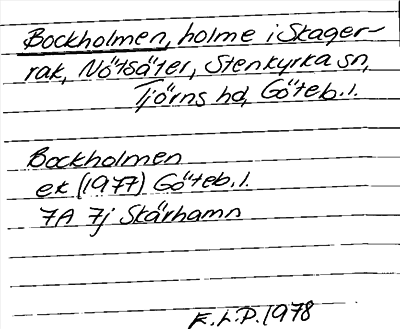 Bockholmen, holme i Skager-
rak, Nötsäter, Stenkyrka sn,
Tjörns hd, Göteb. l.
Bockholmen
ek (1977) Göteb. l.
7A 7j Skärhamn
K.L.P. 1978